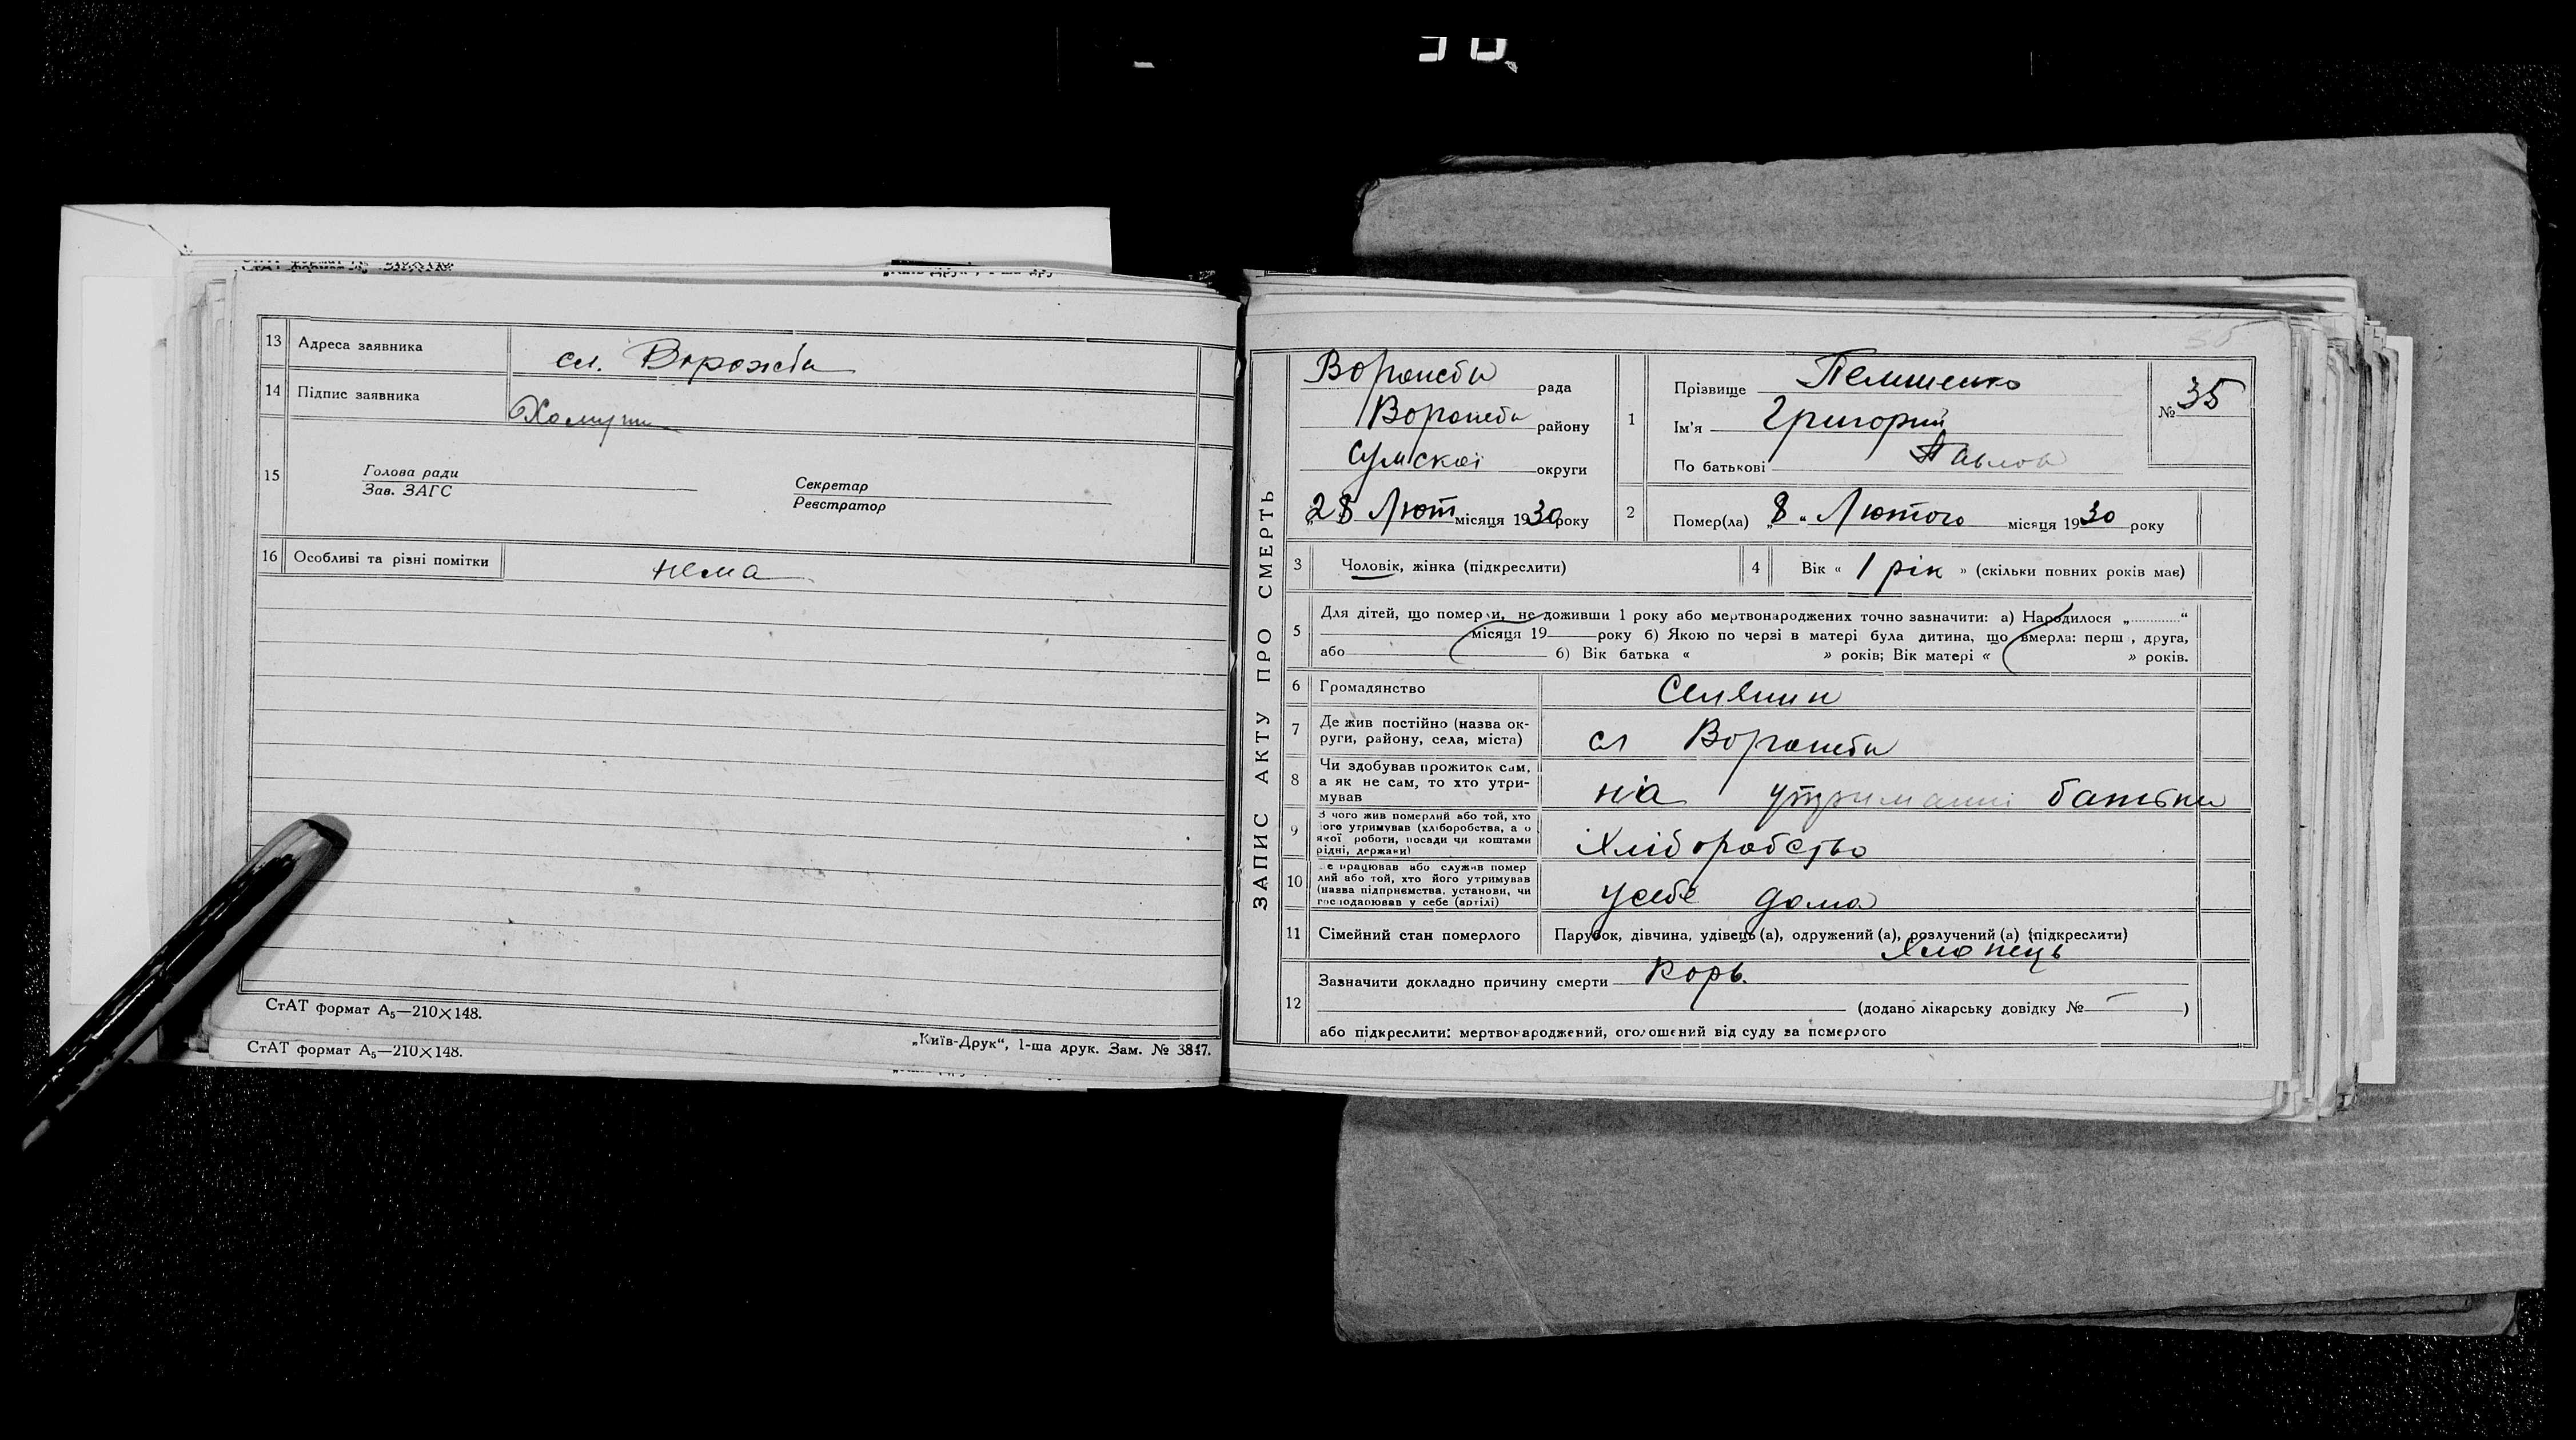 13 Адреса заявника сл. Ворожба
14 Підпис заявника Хомут
15 Голова ради
Зав. ЗАГС
Секретар
Реєстратор
16 Особливі та різні помітки нема
СтАТ формат А₅—210×148.
СтАТ формат А₅—210×148.
„Київ-Друк“, 1-ша друк. Зам. № 3847.
ЗАПИС АКТУ ПРО СМЕРТЬ
Ворожби рада
Ворожби району
Сумскої округи
„28 Лют місяця 1930 року
1 Прізвище
Ім'я Григорий
По батькові Павлов
№ 35
2 Помер(ла) „8“ Лютого місяця 1930 року
3 Чоловік, жінка (підкреслити)
4 Вік « 1 рік » (скільки повних років має)
5 Для дітей, що померли, не доживши 1 року або мертвонароджених точно зазначити: а) Народилося „............“
місяця 19 року б) Якою по черзі в матері була дитина, що вмерла: перш , друга,
або б) Вік батька « » років; Вік матері « » років.
6 Громадянство Селянин
7 Де жив постійно (назва ок-
руги, району, села, міста) сл Ворожби
8 Чи здобував прожиток сам,
а як не сам, то хто утри-
мував на утриманні батьки
9 З чого жив померлий або той, хто
його утримував (хліборобства, а о
якої роботи, посади чи коштами
рідні, держави) Хліборобство
10 е працював або служив помер
лий або той, хто його утримував
(назва підприємства, установи, чи
господарював у себе (артілі) усебе дома
11 Сімейний стан померлого Парубок, дівчина, удівець (а), одружений (а), розлучений (а) (підкреслити)
Хлопець
12 Зазначити докладно причину смерти Корь.
(додано лікарську довідку № — )
або підкреслити: мертвонароджений, оголошений від суду за померлого